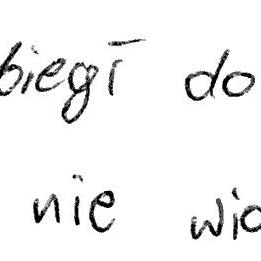 biegł do
nie